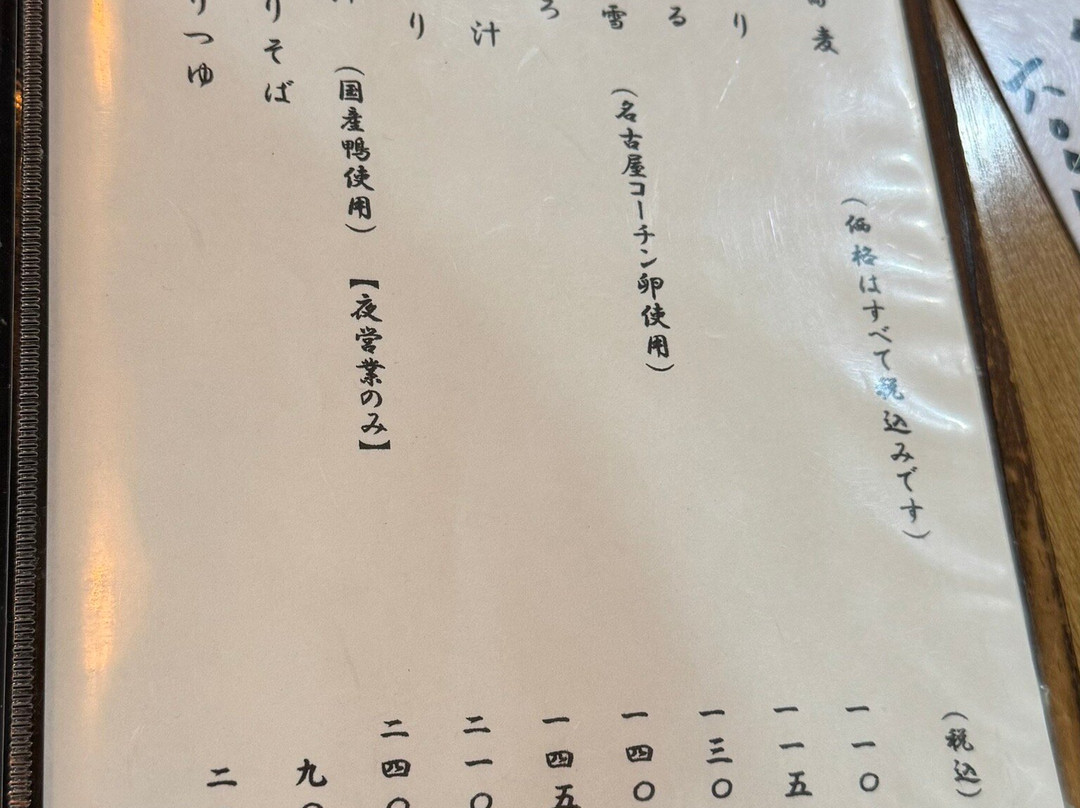 麦 （価格はすべて税込みです） （税込）
り 一一〇
る 一一五
雪 （名古屋コーチン卵使用） 一三〇
ろ 一四〇
汁 一四五
り 二一〇
（国産鴨使用） 【夜営業のみ】 二四〇
りそば 九〇
りつゆ 二